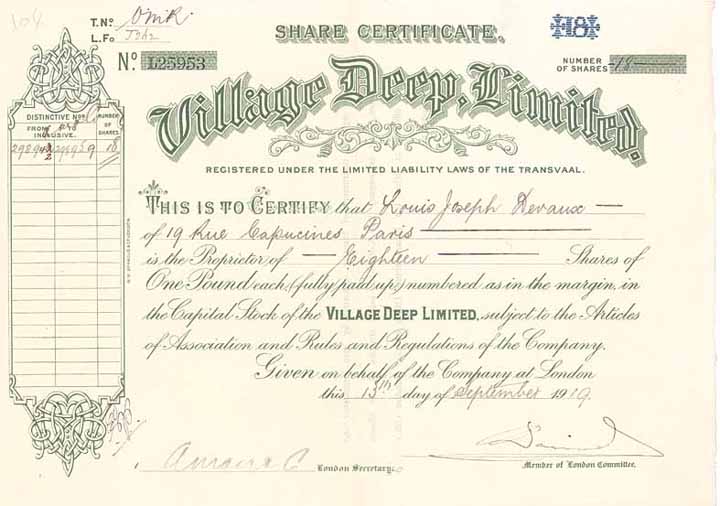 104
T. No.
L. Fo.
SHARE CERTIFICATE.
18
No. L25953
NUMBER OF SHARES 18
Village Deep, Limited.
REGISTERED UNDER THE LIMITED LIABILITY LAWS OF THE TRANSVAAL.
DISTINCTIVE Nos.
FROM TO INCLUSIVE.
NUMBER OF SHARES
18
THIS IS TO CERTIFY that Louis Joseph Devaux
of 19 Rue Capucines Paris
is the Proprietor of Eighteen Shares of
One Pound each, (fully paid up,) numbered as in the margin, in
the Capital Stock of the VILLAGE DEEP LIMITED, subject to the Articles
of Association and Rules and Regulations of the Company.
Given on behalf of the Company at London
this 15th day of September 1919
London Secretary.
Member of London Committee.